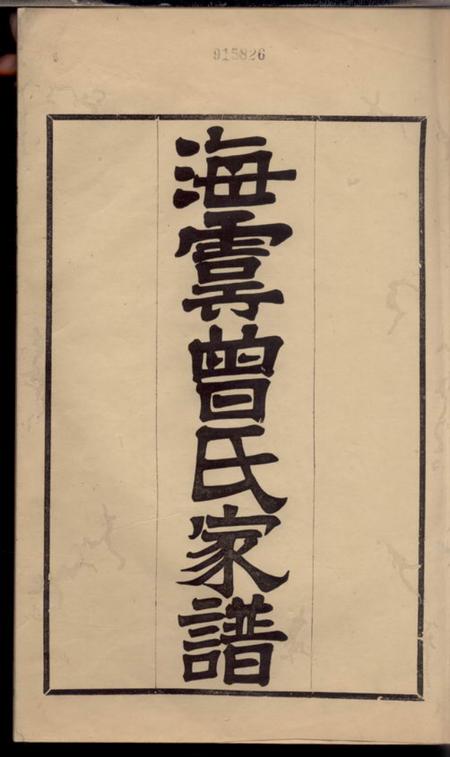 915826
海虞曾氏家譜